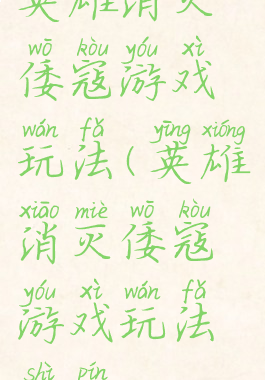 英雄消灭
wō kòu yóu xì
倭寇游戏
wán fǎ yīng xióng
玩法(英雄
xiāo miè wō kòu
消灭倭寇
yóu xì wán fǎ
游戏玩法
shì pín